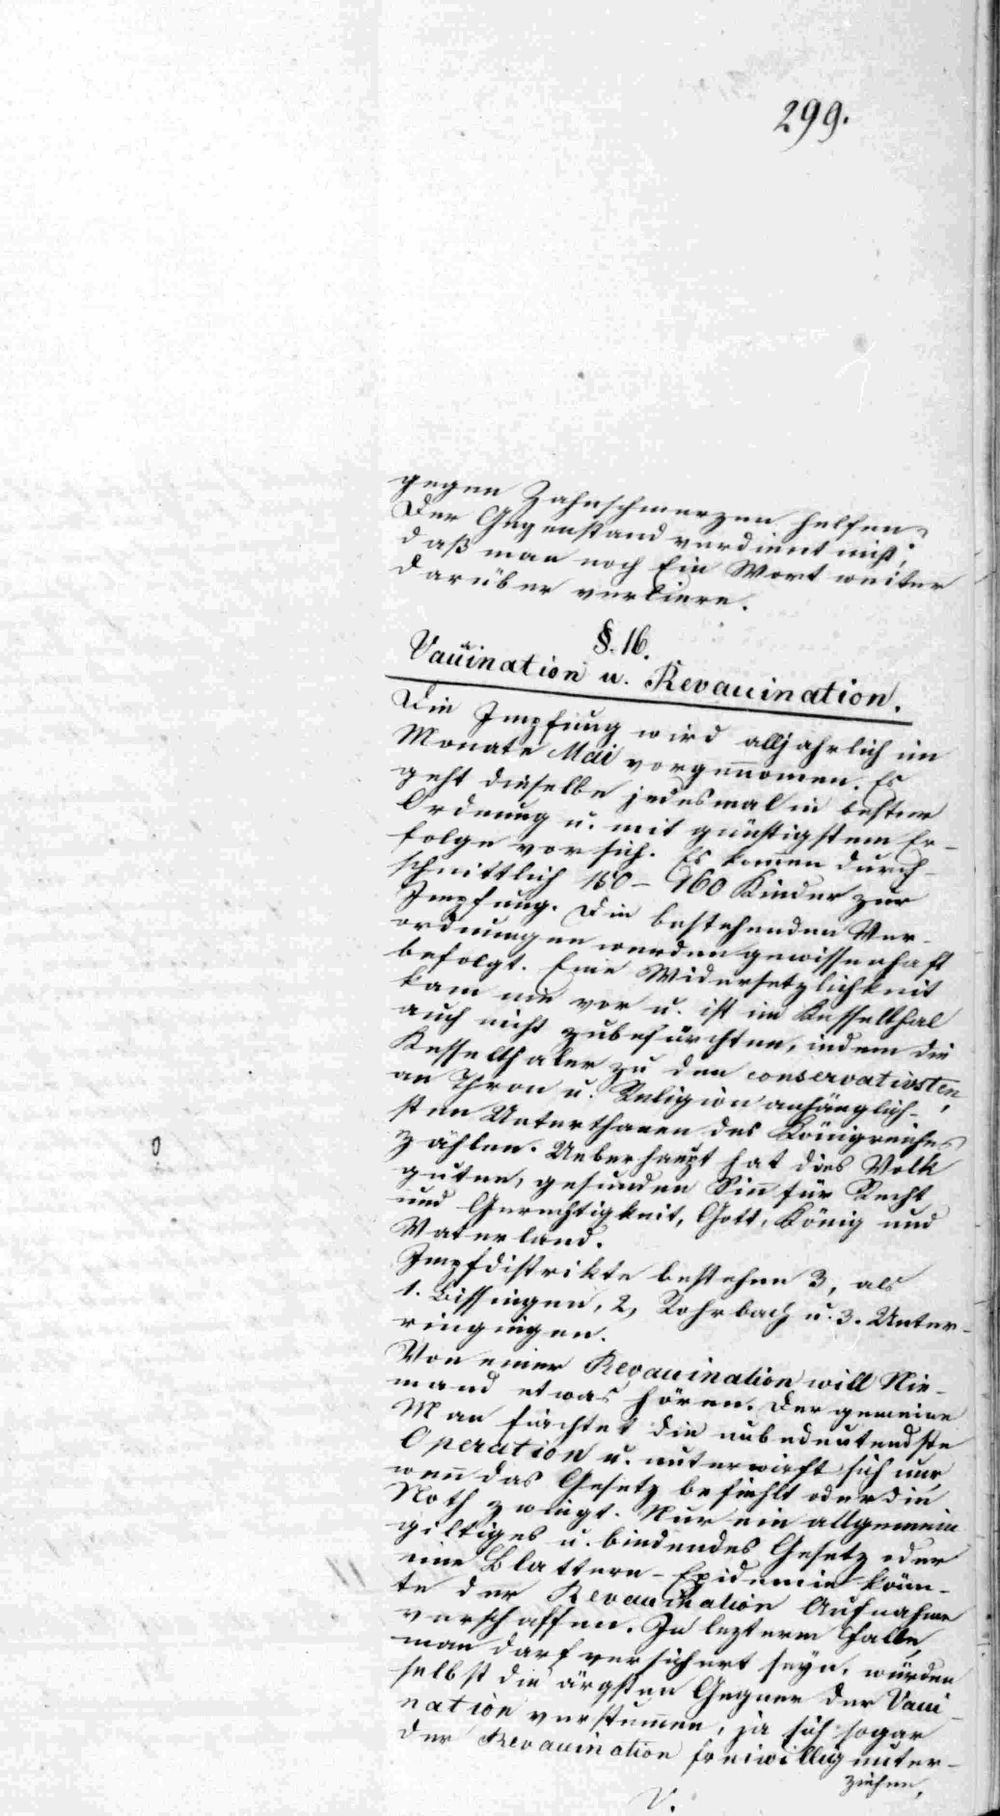 299.
gegen Zahnschmerzen helfen?
Der Gegenstand verdient nicht,
daß man noch Ein Wort weiter
darüber verliere.
§. 16.
Vaccination u. Revaccination.
Die Impfung wird alljahrlich im
Monate Mai vorgenomen. Es
geht dieselbe jedesmal in bester
Ordnung u. mit günstigstem Er-
folge vor sich. Es komen durch-
schnittlich 150 - 160 Kinder zur
Impfung. Die bestehenden Ver-
ordnungen werden gewissenhaft
befolgt. Eine Widersetzlichkeit
kam nie vor u. ist im Kesselthal
auch nicht zubefürchten, indem die
Kesselthaler zu den conservativsten,
an Thron u. Religion anhänglich-
sten Unterthanen des Königreiches
zählen. Ueberhaupt hat dies Volk
guten, gesunden Sin für Recht
und Gerechtigkeit, Gott, König und
Vaterland.
Impfdistrikte bestehen 3, als
1. Bissingen, 2, Rohrbach u. 3. Unter-
ringingen.
Von einer Revaccination will Nie-
mand etwas hören. Der gemeine
Man fürchtet die unbedeutendste
Operation u. unterwirft sich nur,
wen das Gesetz befiehlt oder die
Noth zwingt. Nur ein allgemein
giltiges u. bindendes Gesetz oder
eine Blattern-Epidemie könn-
te der Revaccination Aufnahme
verschaffen. In lezterm Falle,
man darf versichert seyn, würden
selbst die ärgsten Gegner der Vacci-
nation verstumen, ja sich sogar
der Revaccination freiwillig unter-
ziehen.
V.